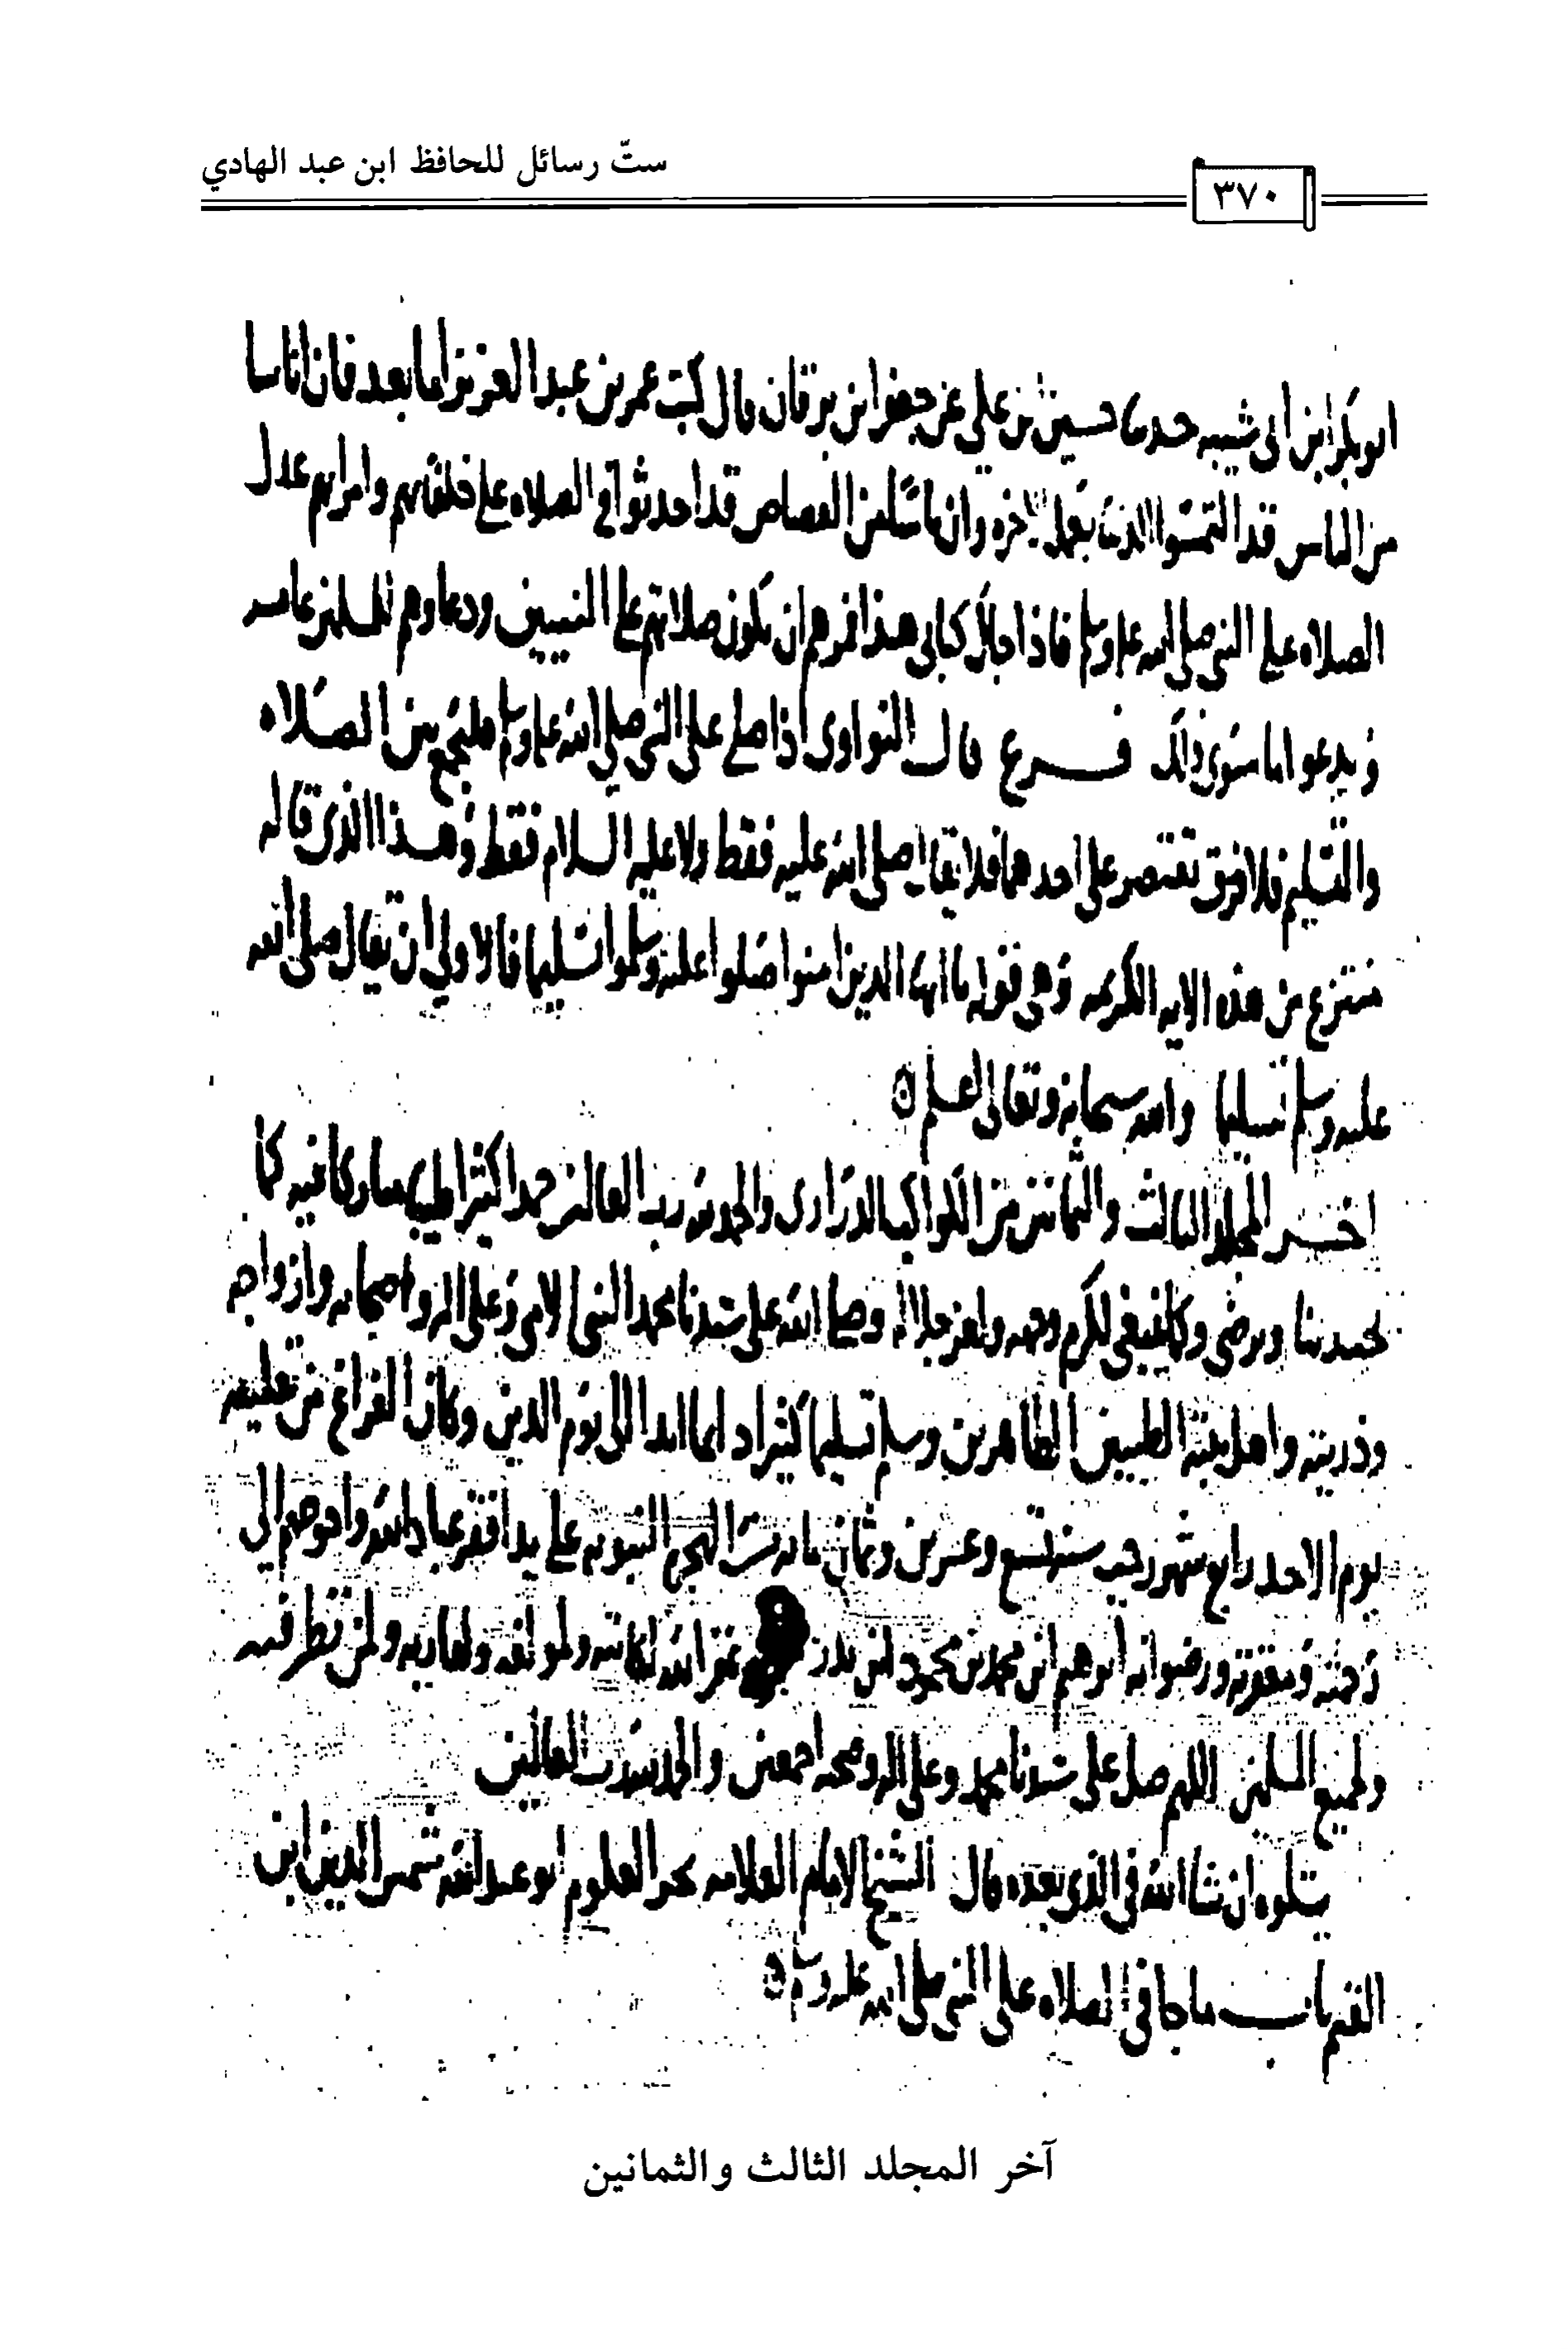 ستّ رسائل للحافظ ابن عبد الهادي
٣٧٠
ابو بكر ابن ابى شيبه حدثنا حسين بن على عن جعفر ابن برقان قال كتب عمر بن عبد العزيز اما بعد فان اناسا
من الناس قد التمسوا الدنيا بعمل الاخره وان ناسا من القصاص قد احدثوا في الصلاه على خلفائهم وامرايهم عدل
الصلاه على النبى صلى الله عليه وسلم فاذا جاك كتابى هذا فمرهم ان تكون صلاتهم على النبيين ودعاوهم للمسلمين عامه
ويدعوا ما سوى ذلك فرع قال النواوى اذا صلى على النبى صلى الله عليه وسلم فليجمع بين الصلاه
والتسليم فلا تقتصر على احدهما فلا يقال صلى الله عليه فقط ولا عليه السلام فقط وهذا الذى قاله
منتزع من هذه الايه الكريمه وهى قوله يا ايها الذين امنوا صلوا عليه وسلموا تسليما فالاولى ان يقال صلى الله
عليه وسلم تسليما والله سبحانه وتعالى اعلم
اخر المجلد الثالث والثمانين من الكواكب الدرارى والحمد لله رب العالمين حمدا كثيرا طيبا مباركا فيه كما
يحب ربنا ويرضى وكما ينبغى لكرم وجهه ولعز جلاله وصلى الله على سيدنا محمد النبى الامى وعلى اله واصحابه وازواجه
وذريته واهل بيته الطيبين الطاهرين وسلم تسليما كثيرا دايما ابدا الى يوم الدين وكان الفراغ من تعليقه
يوم الاحد رابع شهر رجب سنه تسع وعشرين وثمان مايه من الهجره النبويه على يد افقر عباد الله واحوجهم الى
رحمته ومغفرته ورضوانه ابرهيم ابن محمد بن محمود ابن بدر غفر الله لكاتبه ولمولفه ولقاريه ولمن نظر فيه
ولجميع المسلمين اللهم صل على سيدنا محمد وعلى اله وصحبه اجمعين والحمد لله رب العالمين
يتلوه ان شا الله فى الذى بعده قال الشيخ الامام العلامه بحر العلوم ابو عبد الله شمس الدين ابن
القيم باب ما جا فى الصلاه على النبى صلى الله عليه وسلم
آخر المجلد الثالث والثمانين